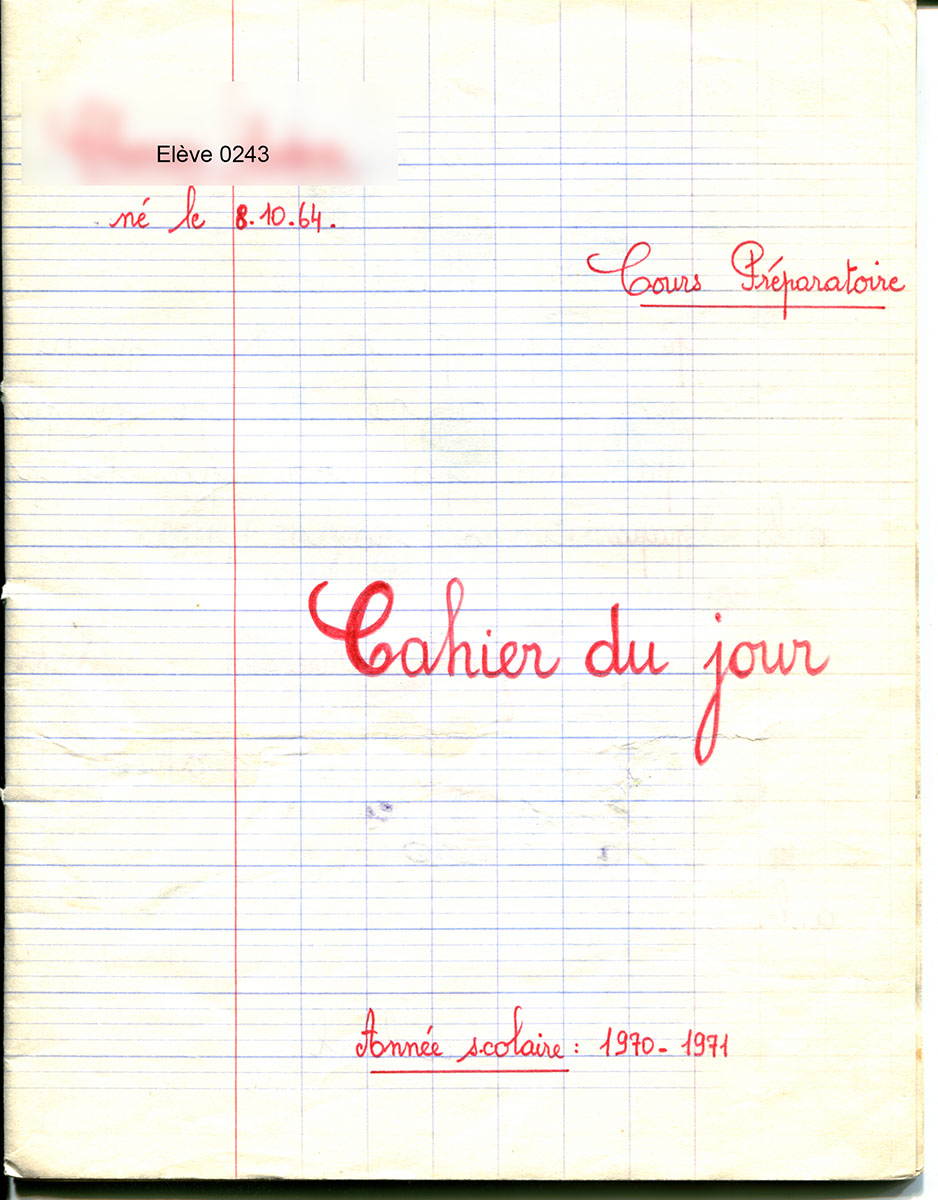 Elève 0243
né le 8.10.64.
Cours Préparatoire
Cahier du jour
Année scolaire : 1970-1971